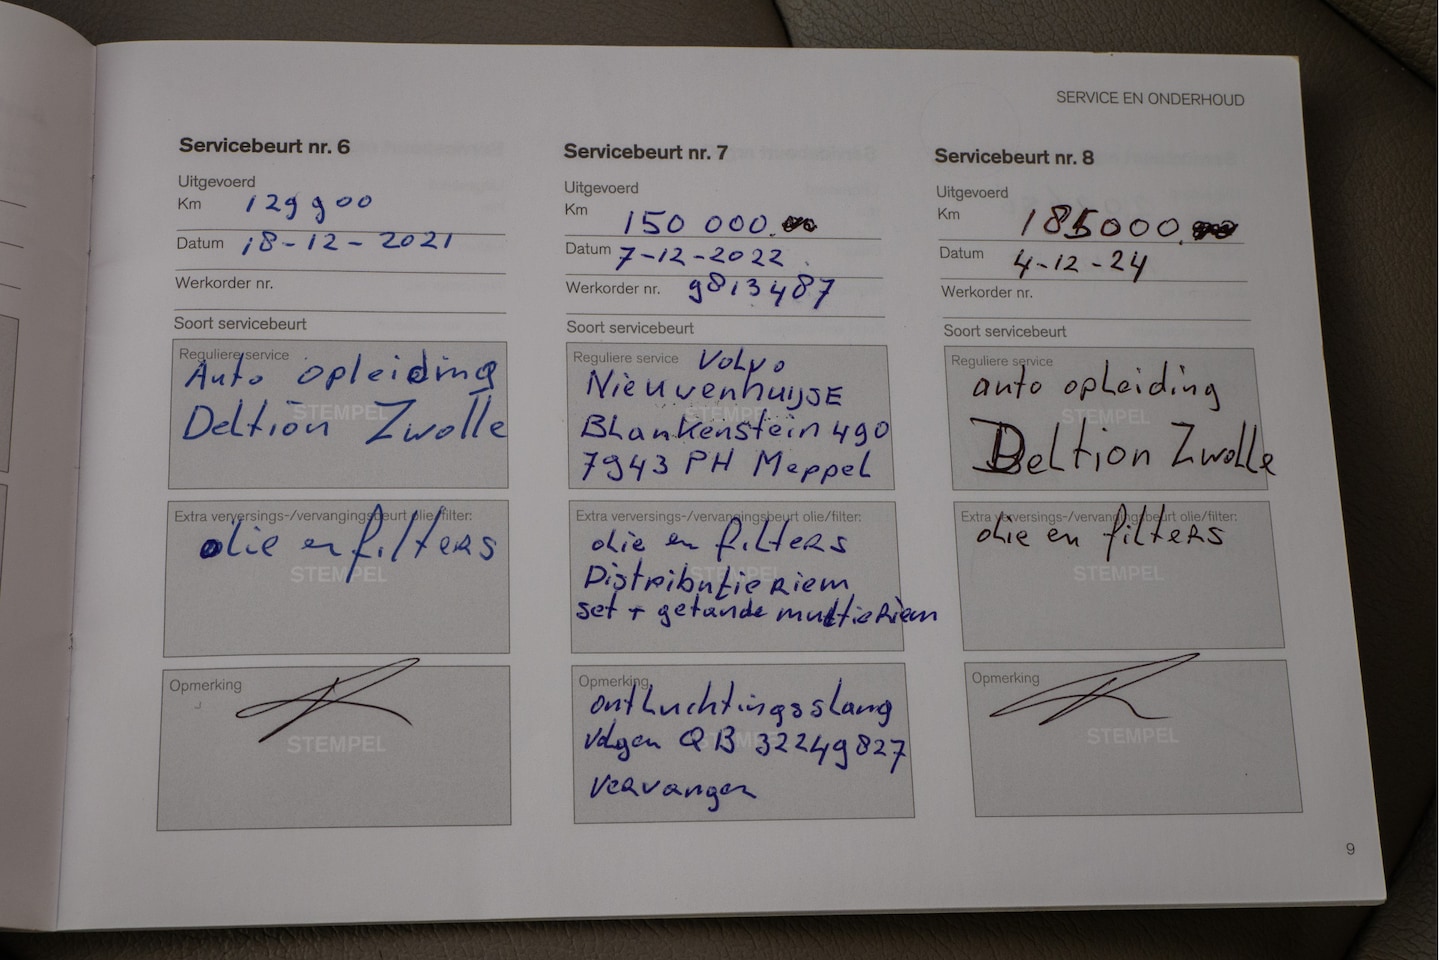 SERVICE EN ONDERHOUD
Servicebeurt nr. 6
Uitgevoerd
Km 129 900
Datum 18-12-2021
Werkorder nr.
Soort servicebeurt
Reguliere service
Auto opleiding
STEMPEL
Deltion Zwolle
Extra verversings-/vervangingsbeurt olie/filter:
olie en filters
STEMPEL
Opmerking
STEMPEL
Servicebeurt nr. 7
Uitgevoerd
Km 150 000.
Datum 7-12-2022
Werkorder nr. 9813487
Soort servicebeurt
Reguliere service Volvo
NieuvenhuijsE
STEMPEL
Blankenstein 490
7943 PH Meppel
Extra verversings-/vervangingsbeurt olie/filter:
olie en filters
STEMPEL
Distributie Riem
set + getande multieRiem
Opmerking
ontluchtingsslang
STEMPEL
volgen QB 32249827
vervangen
Servicebeurt nr. 8
Uitgevoerd
Km 185000.
Datum 4-12-24
Werkorder nr.
Soort servicebeurt
Reguliere service
auto opleiding
STEMPEL
Deltion Zwolle
Extra verversings-/vervangingsbeurt olie/filter:
olie en filters
STEMPEL
Opmerking
STEMPEL
9